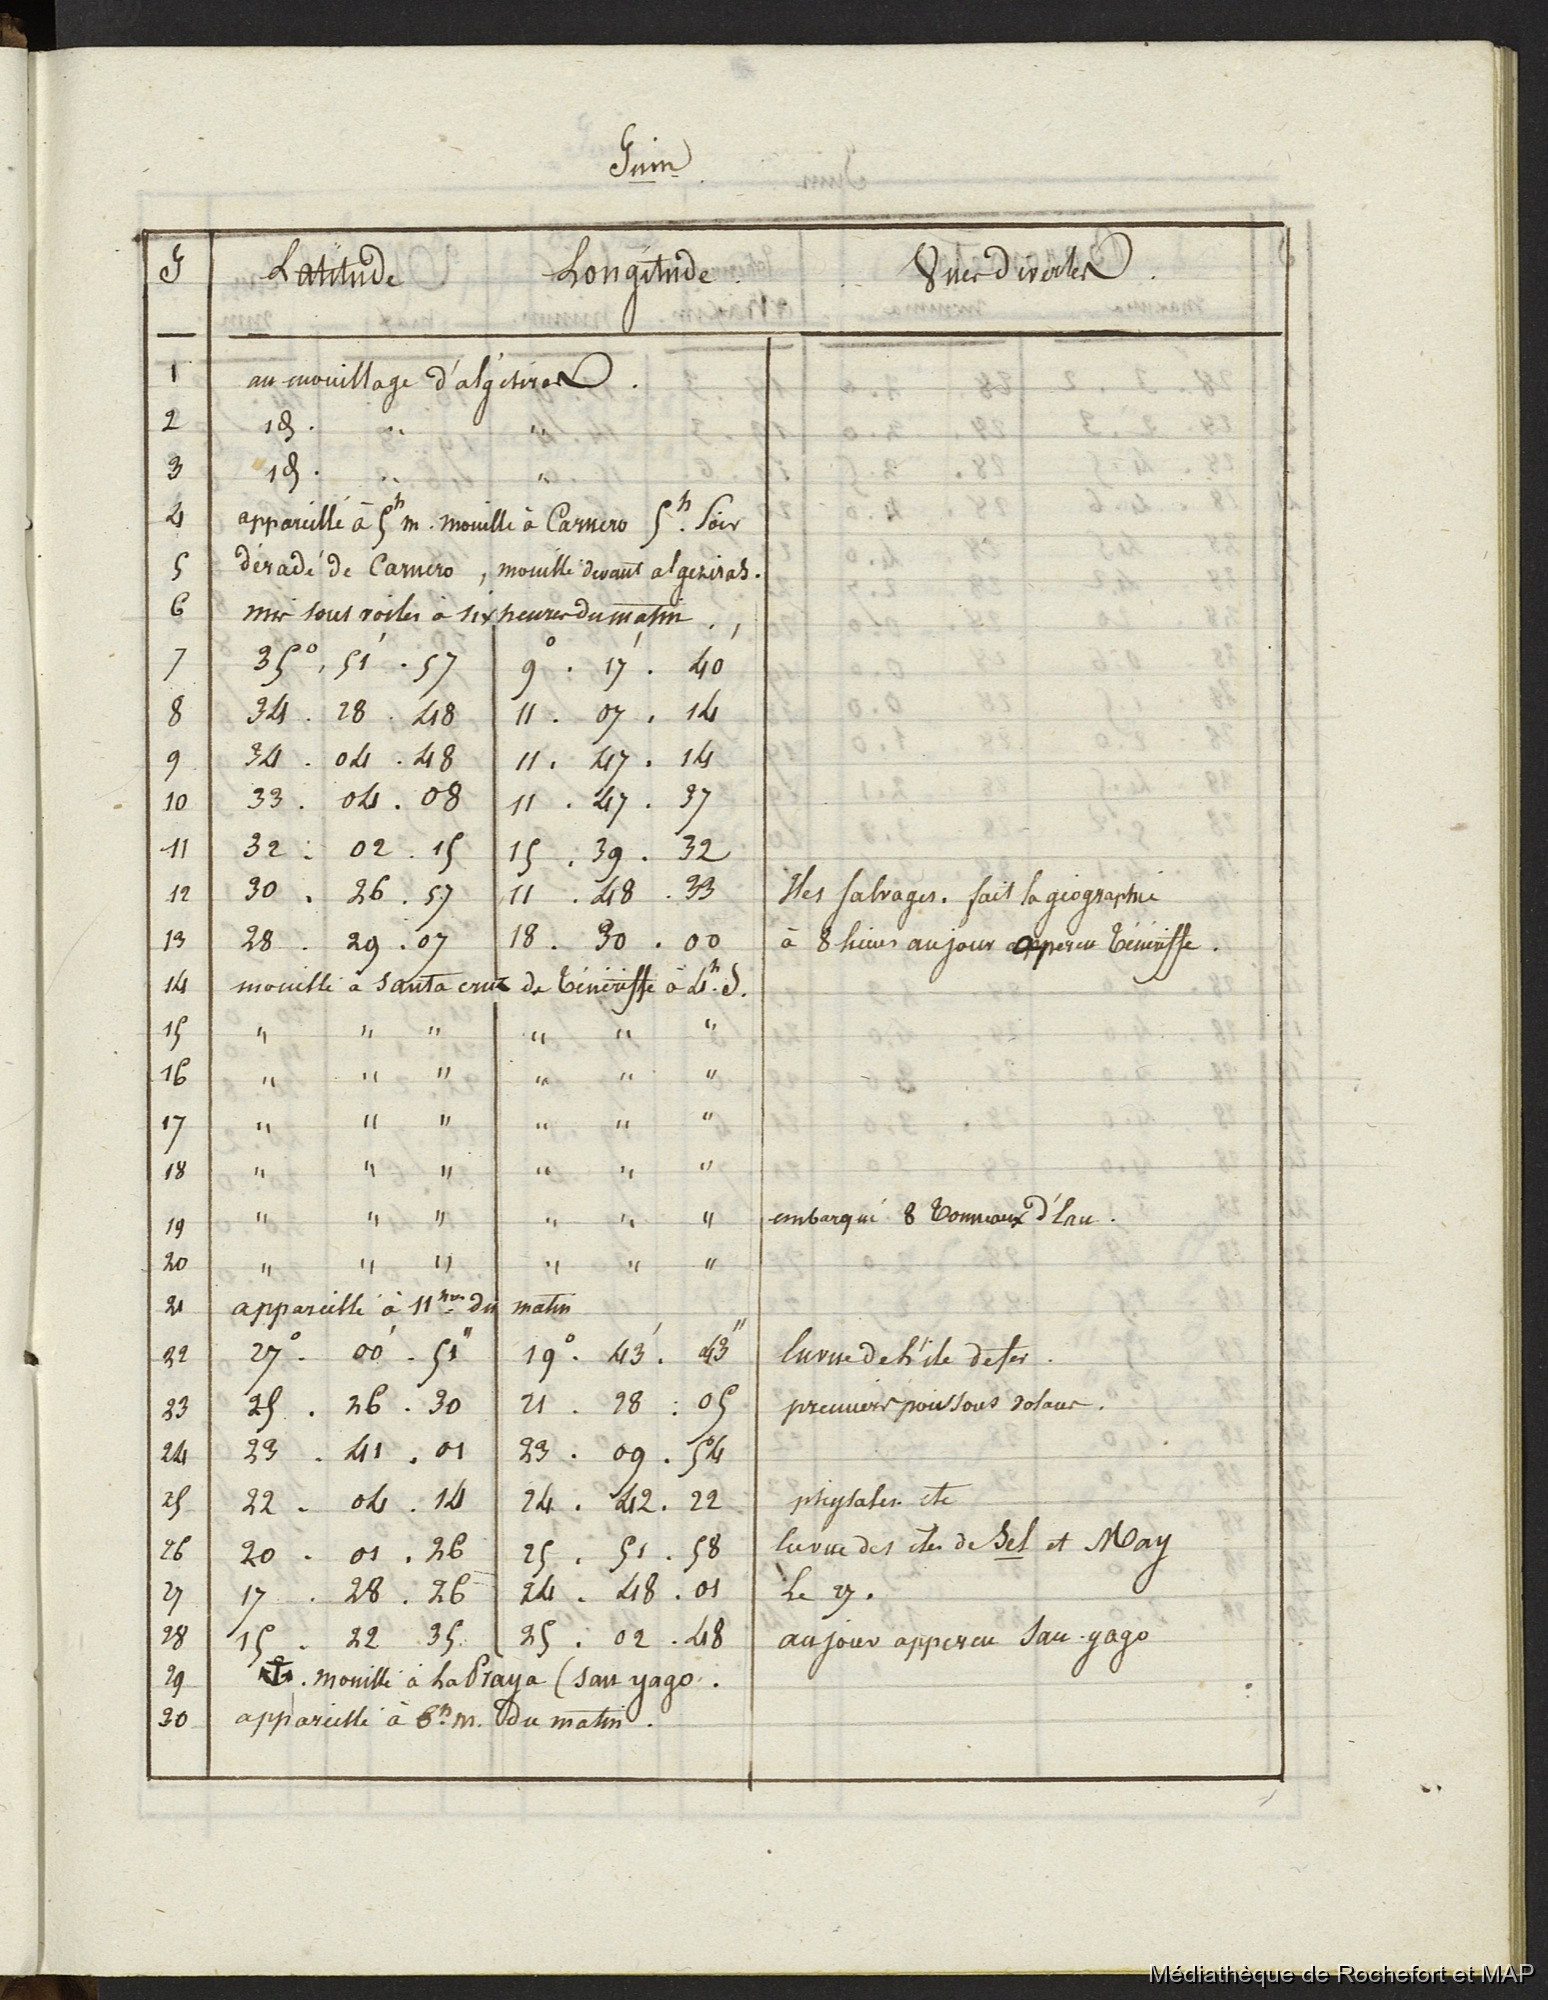 Juin
J Latitude Longitude Vues diverses
1 au mouillage d'algésiras.
2 id. " "
3 id. " "
4 appareillé à 5h m. mouillé à Carnero 5h. Soir
5 déradé de Carnero, mouillé devant algeziras.
6 mis sous voiles à six heures du matin.
7 35°. 51'. 57 9°. 17'. 40'
8 34. 28. 48 11. 07. 14
9 34. 04. 48 11. 47. 14
10 33. 04. 08 11. 47. 37
11 32. 02. 15 15. 39. 32
12 30. 26. 57 11. 48. 33 Iles salvages. fait la géographie
13 28. 29. 07 18. 30. 00 à 8 heures au jour apperçu Ténériffe.
14 mouillé à Santa cruz de Ténériffe à 4h. S.
15 " " " " " "
16 " " " " " "
17 " " " " " "
18 " " " " " "
19 " " " " " " embarqué 8 Tonneaux d'Eau.
20 " " " " " "
21 appareillé à 11 hres du matin
22 27°. 00'. 51" 19°. 43'. 43" En vue de l'ile de fer.
23 25. 26. 30 21. 28. 05 premiers poissons volans.
24 23. 41. 01 23. 09. 54
25 22. 04. 14 24. 42. 22 physales etc
26 20. 01. 26 25. 51. 58 En vue des iles de Sel et May
27 17. 28. 26 24. 48. 01 Le 27.
28 15. 22 35 25. 02. 48 au jour apperçu San-yago
29 ⚓. mouillé à La Praya (San yago.
30 appareillé à 8h. m. du matin.
Médiathèque de Rochefort et MAP